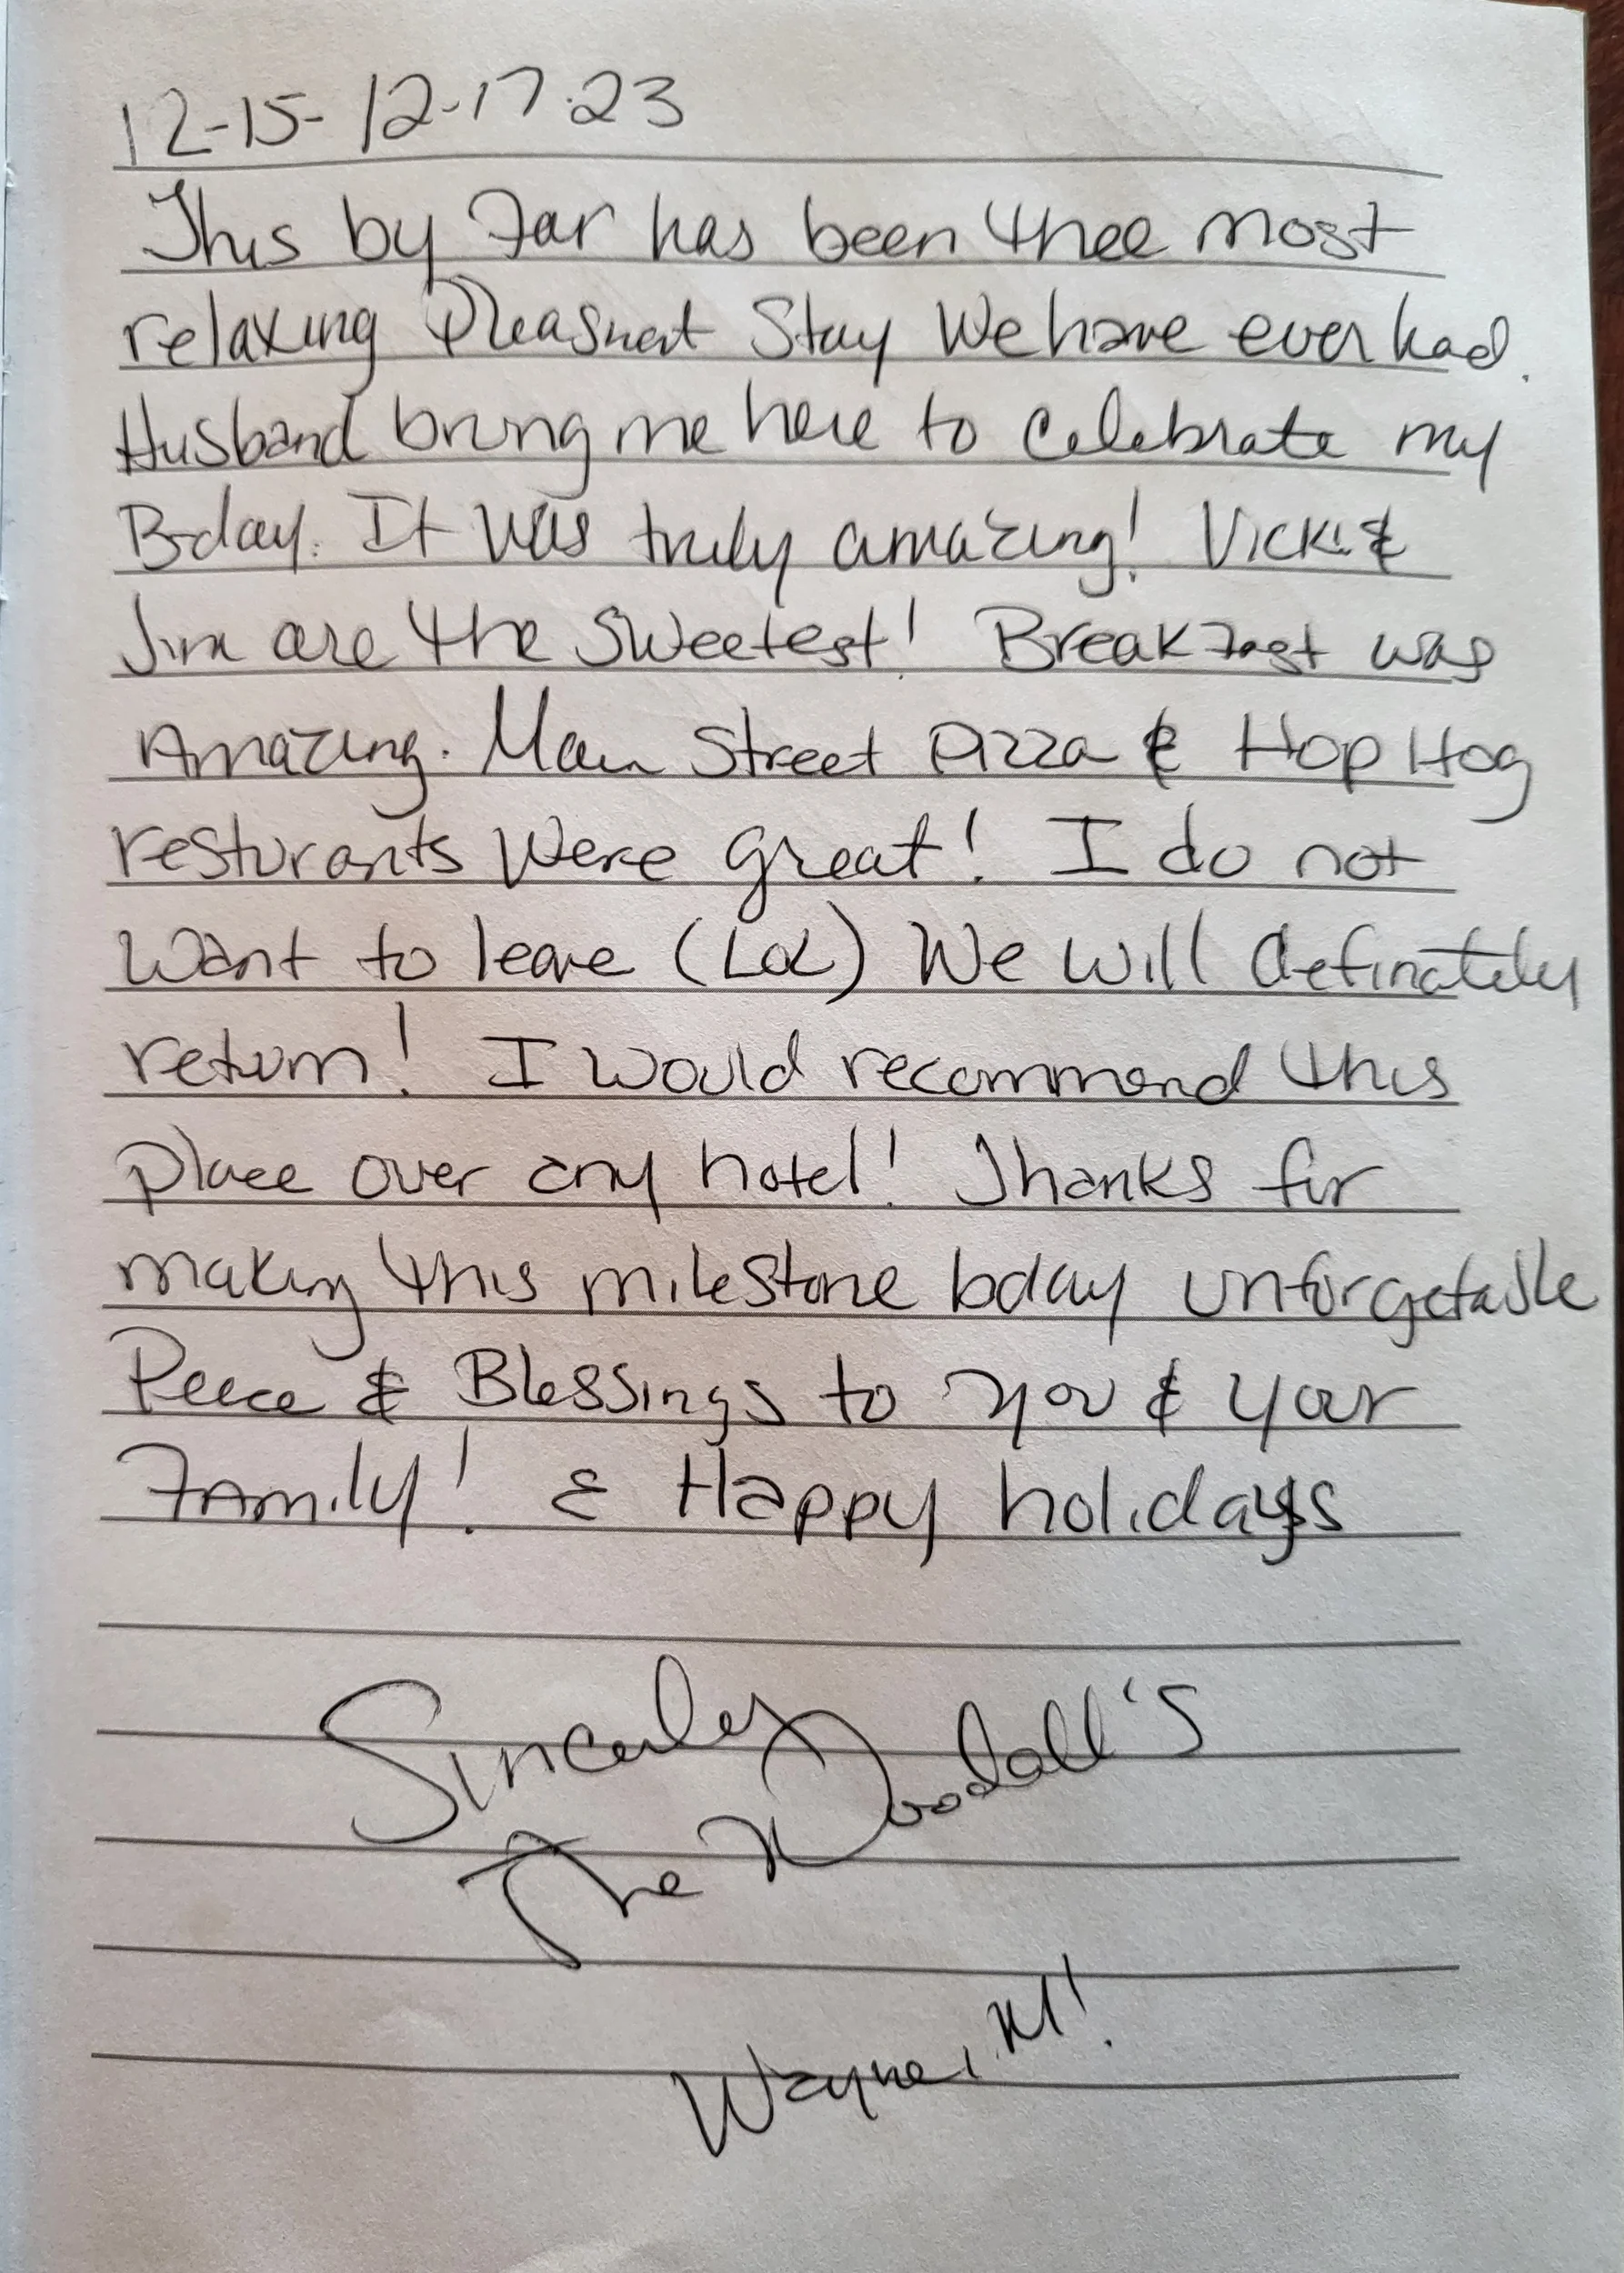 12-15-12-17-23
This by Far has been thee most
relaxing Pleasnat Stay We have ever had.
Husband bring me here to Celebrate my
B-day. It was truly amazing! Vicki &
Jim are the Sweetest! Breakfast was
Amazing. Main Street Pizza & Hop Hog
resturants Were great! I do not
Want to leave (LOL) We will definately
return! I would recommend this
place over any hotel! Thanks for
making this milestone bday unforgetable
Peace & Blessings to you & your
Family! & Happy holidays
Sincerley
The Woodall's
Wayne, MI!